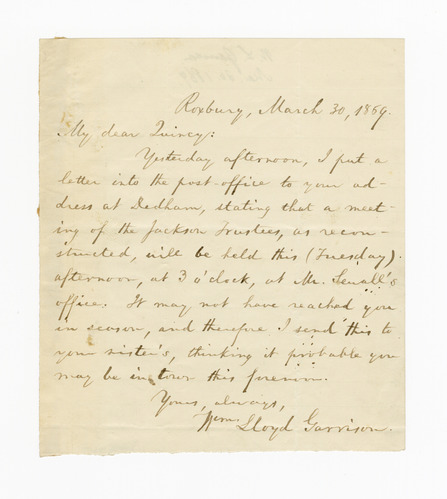 Roxbury, March 30, 1869.
My dear Quincy:
Yesterday afternoon, I put a
letter into the post-office to your ad-
dress at Dedham, stating that a meet-
ing of the Jackson trustees, as recon-
structed, will be held this (Tuesday)
afternoon, at 3 o'clock, at Mr. Sewall's
office. It may not have reached you
in season, and therefore I send this to
your sister's, thinking it probable you
may be in town this forenoon.
Yours, always,
Wm. Lloyd Garrison.